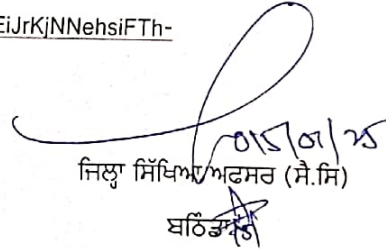 EiJrKjNNehsiFTh-
01/07/25
ਜਿਲ੍ਹਾ ਸਿੱਖਿਆ ਅਫਸਰ (ਸੈ.ਸਿ)
ਬਠਿੰਡਾ